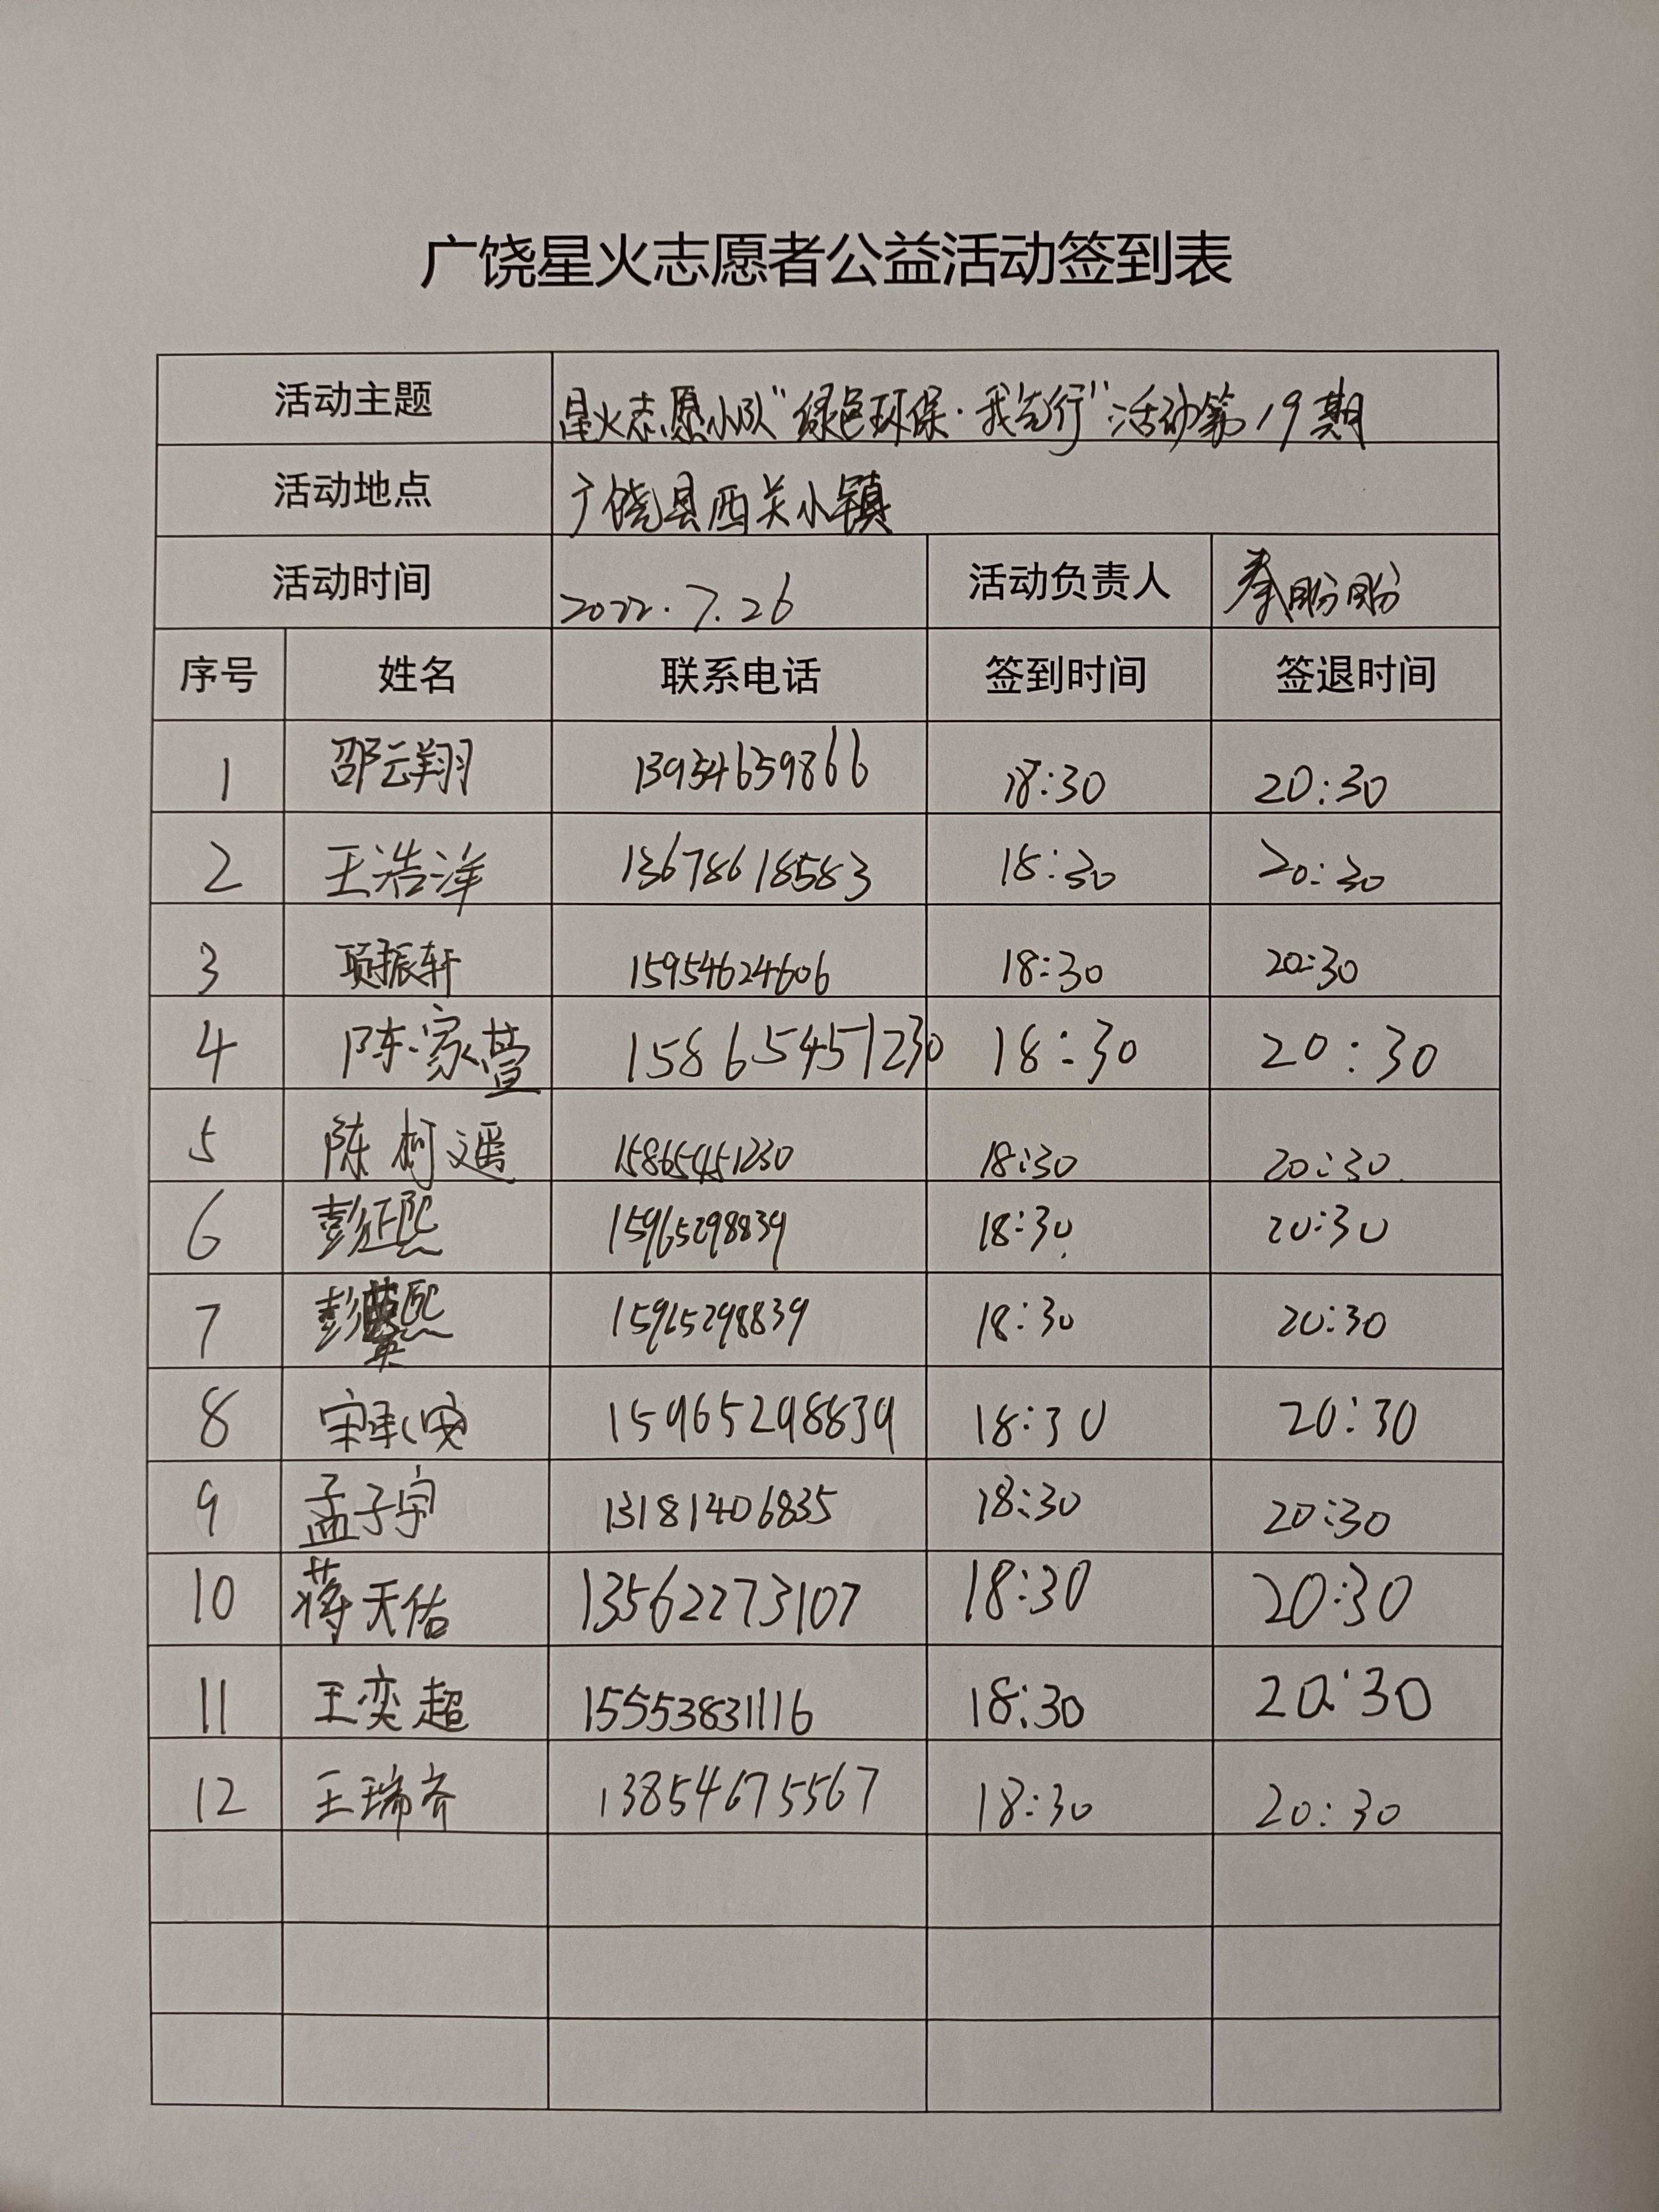 广饶星火志愿者公益活动签到表
活动主题 星火志愿小队“绿色环保·我先行”活动第19期
活动地点 广饶县西关小镇
活动时间 2022.7.26 活动负责人 秦盼盼
序号 姓名 联系电话 签到时间 签退时间
1 邵云翔 13954659866 18:30 20:30
2 王浩洋 13678618583 18:30 20:30
3 项振轩 15954624606 18:30 20:30
4 陈家萱 15865451230 18:30 20:30
5 陈柯遥 15865451230 18:30 20:30
6 彭征熙 15965298839 18:30 20:30
7 彭英熙 15965298839 18:30 20:30
8 宋承 15965298839 18:30 20:30
9 孟子宇 13181406835 18:30 20:30
10 蒋天佑 13562273107 18:30 20:30
11 王奕超 15553831116 18:30 20:30
12 王瑞齐 13854675567 18:30 20:30